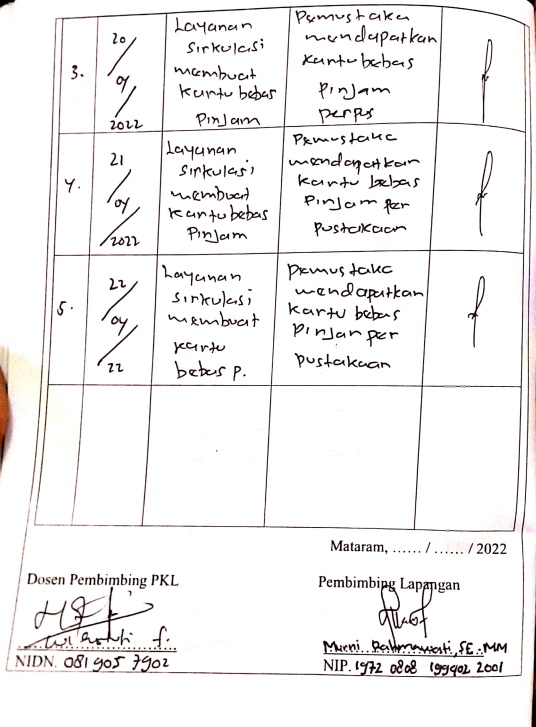 3.
20
/
04
/
2022
Layanan
sirkulasi
membuat
kartu bebas
Pinjam
Pemustaka
mendapatkan
kartu bebas
Pinjam
perpus
4.
21
/
04
/
2022
Layanan
sirkulasi
membuat
kartu bebas
Pinjam
Pemustaka
mendapatkan
kartu bebas
Pinjam per
pustakaan
5.
22
/
04
/
22
Layanan
sirkulasi
membuat
kartu
bebas P.
Pemustaka
mendapatkan
kartu bebas
Pinjam per
pustakaan
Mataram, ...... / ...... / 2022
Dosen Pembimbing PKL
Pembimbing Lapangan
f.
Murni Rahmawati, SE.MM
NIDN. 081905 7902
NIP. 1972 0808 199402 2001